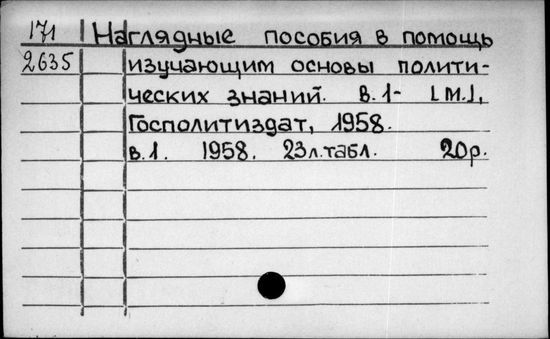 171 Наглядные пособия в помощь
2635 изучающим основы полити-
ческих знаний. в.1- [М.],
Госполитиздат, 1958.
в.1. 1958. 23л.табл. 20р.